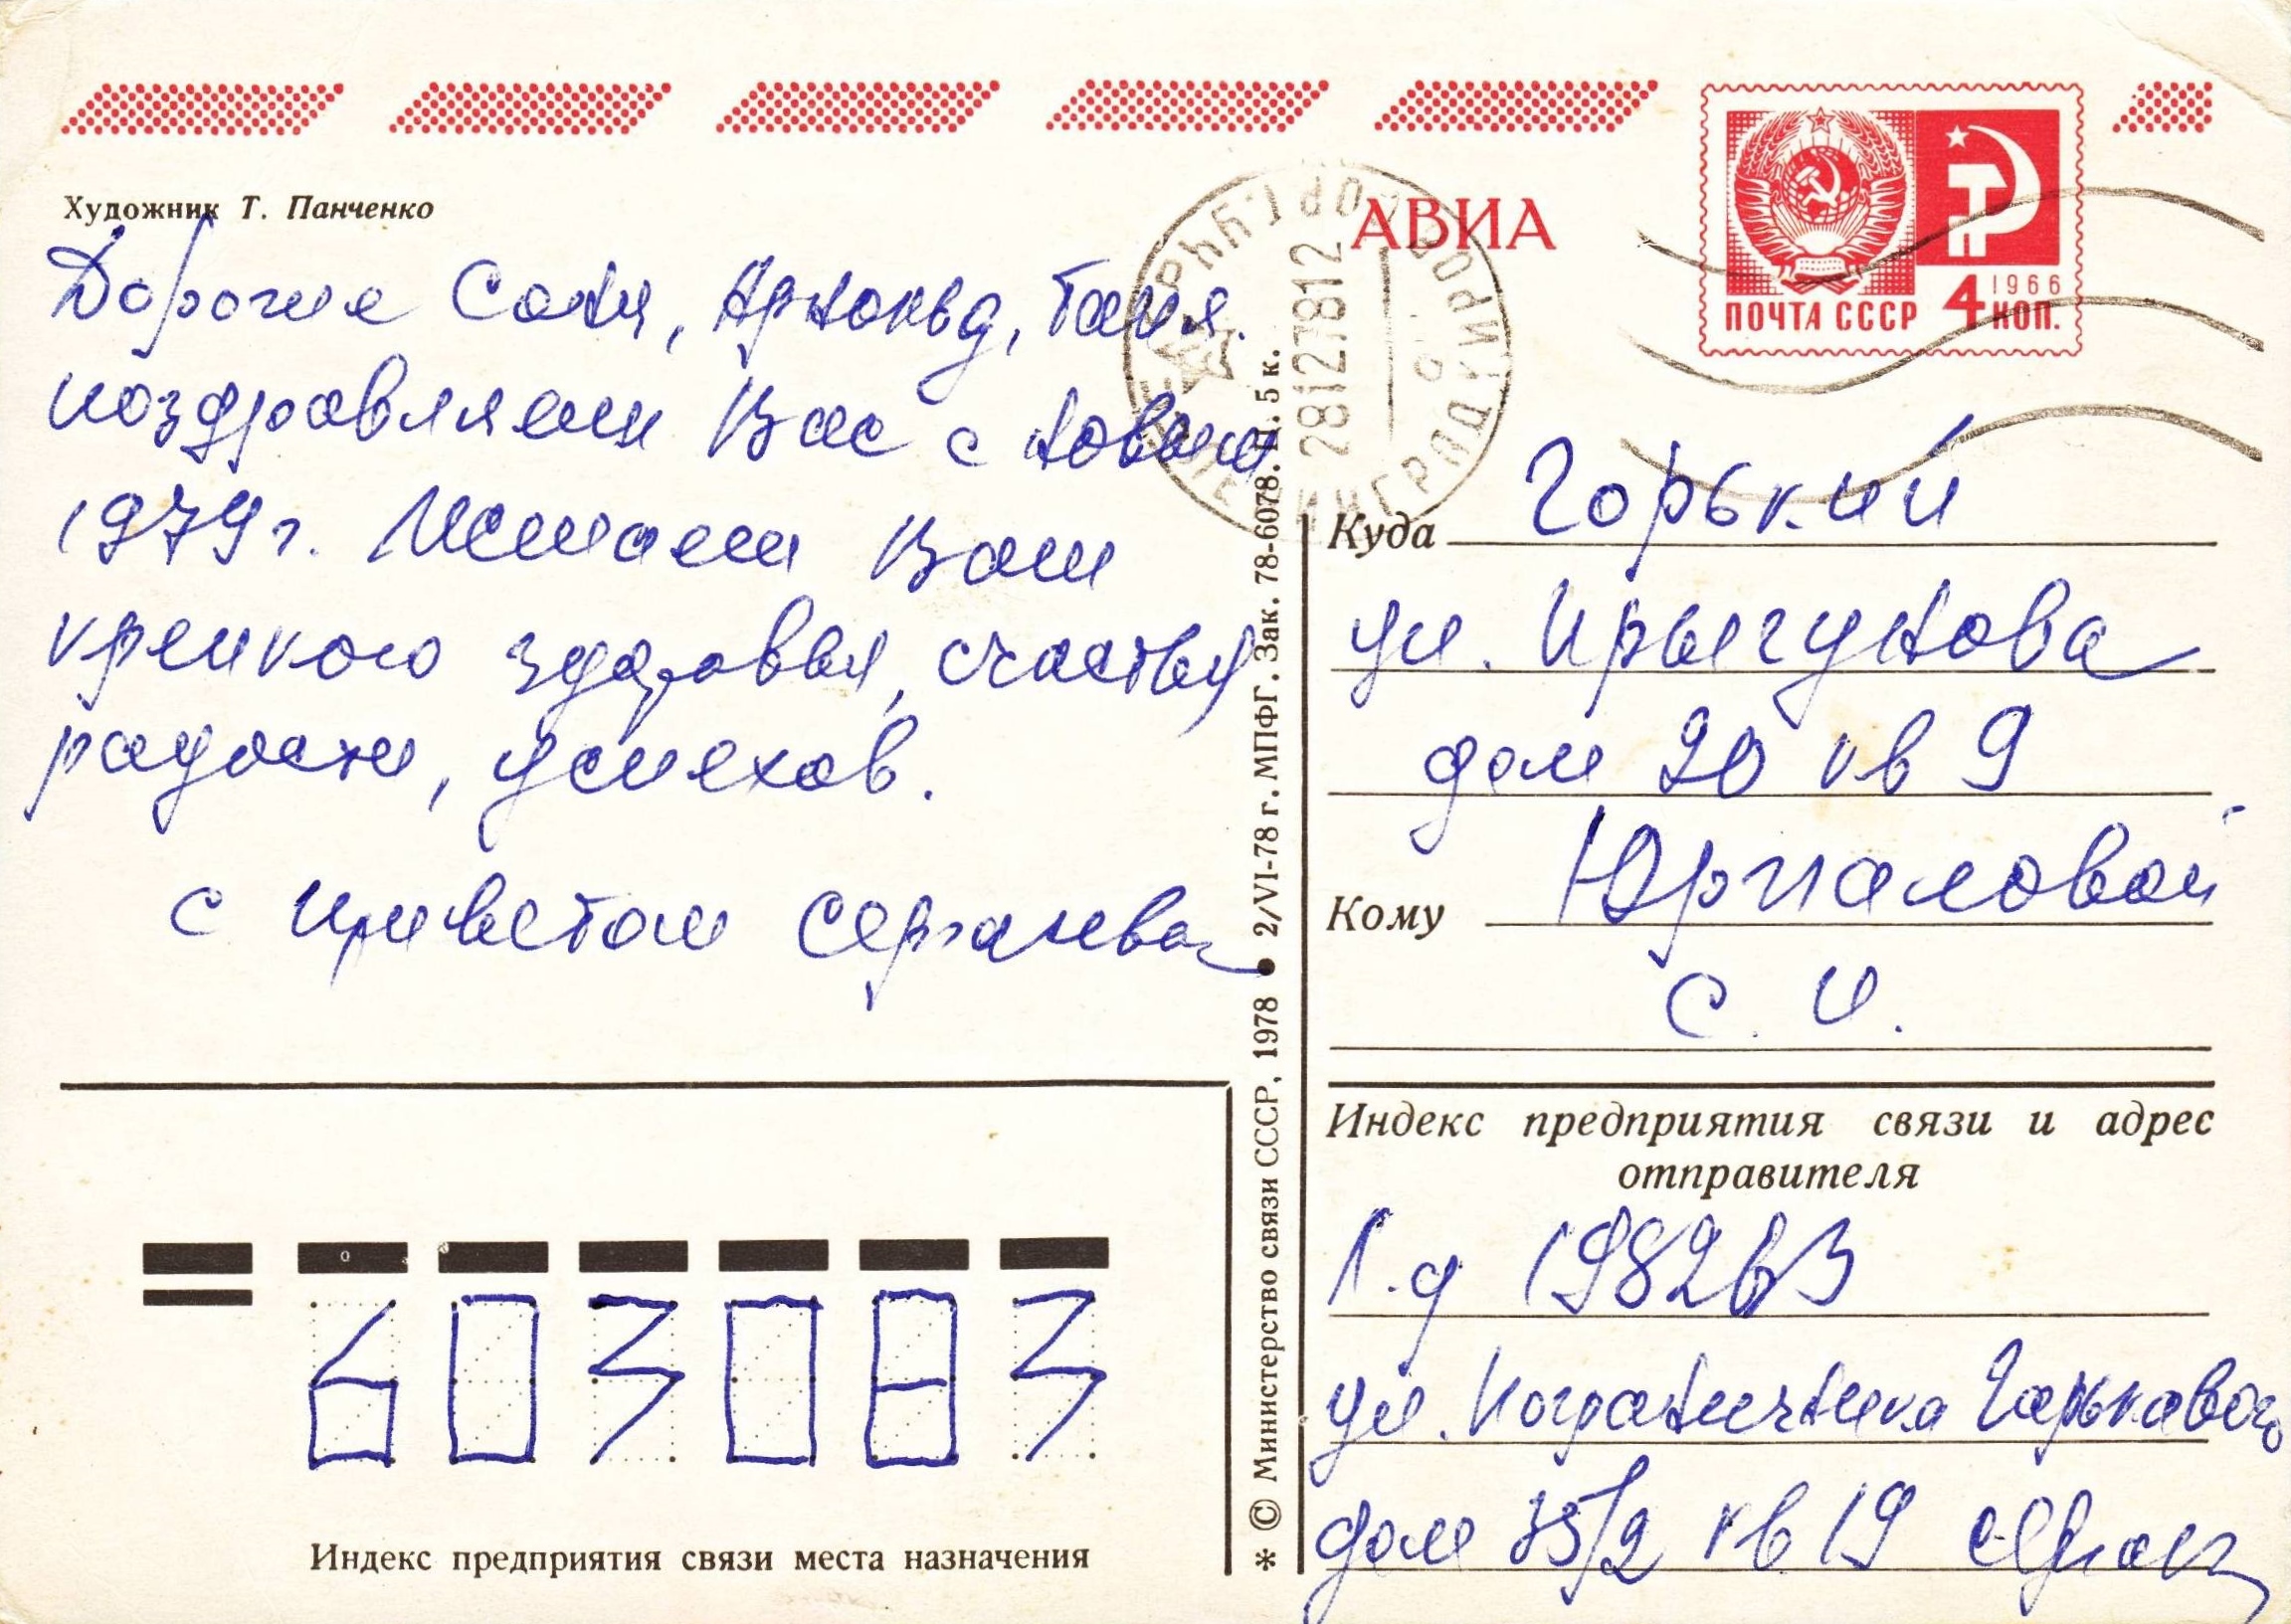 Художник Т. Панченко
АВИА
ПОЧТА СССР 4 КОП.
1966
28127812
ЛЕНИНГРАД
Дорогие Соня, Арнольд, Таня.
поздравляем Вас с новым
1979 г. Желаем Вам
крепкого здоровья, счастья
радости, успехов.
с приветом
Куда Горький
ул. Прыгунова
дом 20 кв 9
Кому Юрпаловой
С. И.
Индекс предприятия связи и адрес
отправителя
Л.д 198263
ул. Пограничника Гарькавого
дом 35/2 кв 19
603083
Индекс предприятия связи места назначения
* © Министерство связи СССР, 1978 ● 2/VI-78 г. МПФГ. Зак. 78-6078. Ц. 5 к.